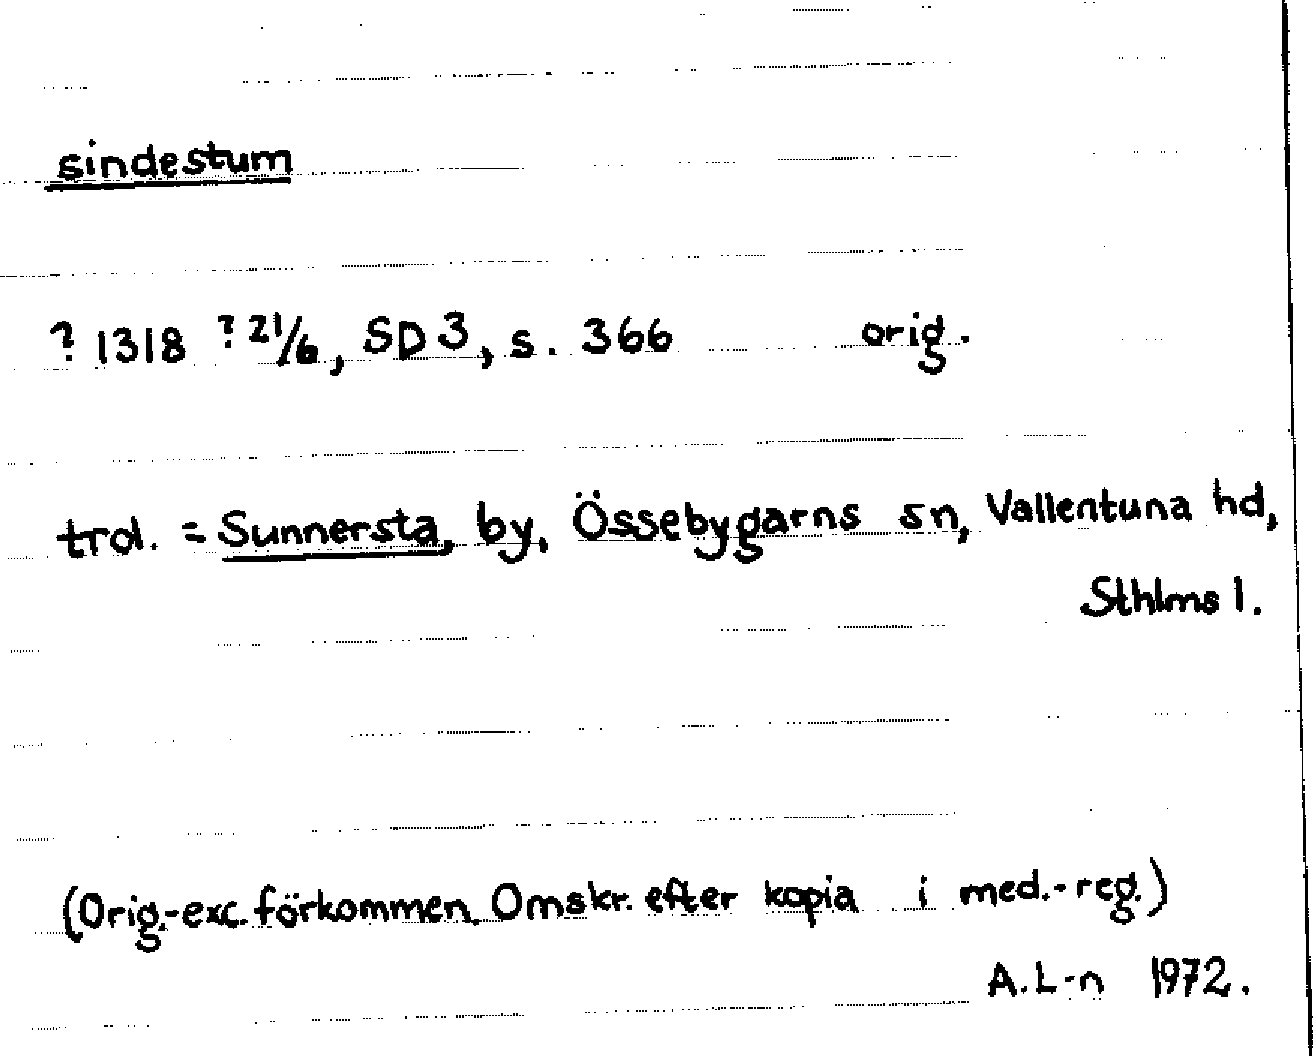 sindestum
? 1318 ? 21/6, SD 3, s. 366 orig.
trol. = Sunnersta, by, Össebygarns sn, Vallentuna hd,
Sthlms l.
(Orig.-exc. förkommen. Omskr. efter kopia i med.-reg.)
A.L-n 1972.